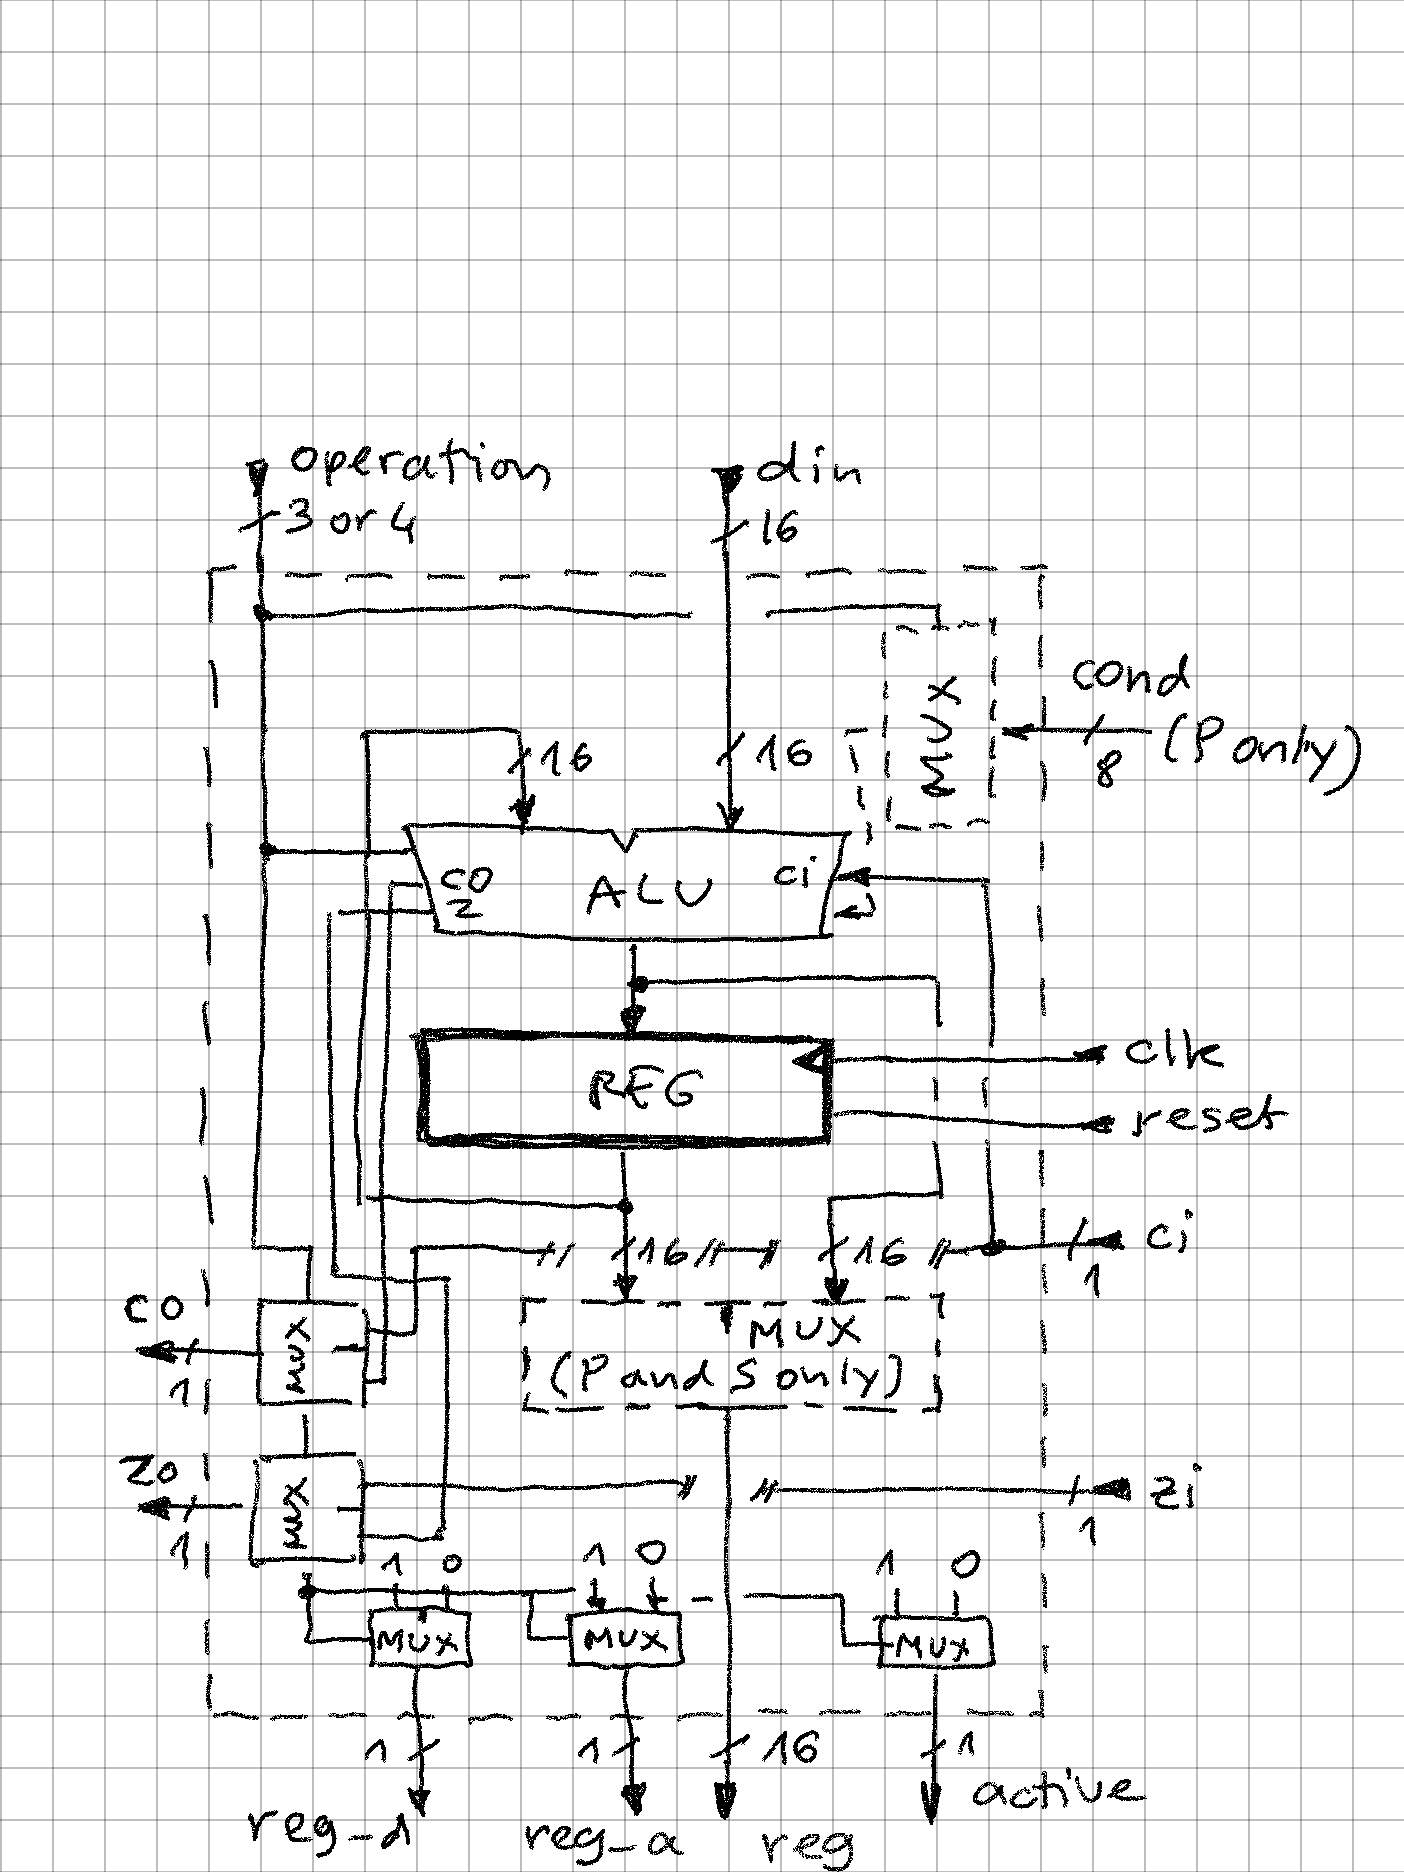 operation
din
3 or 4
16
cond
(P only)
8
MUX
16
16
co
z
ALU
ci
REG
clk
reset
16
16
ci
1
co
1
MUX
MUX
(P and S only)
zo
1
MUX
zi
1
1 0
1 0
1 0
MUX
MUX
MUX
1
1
16
1
reg_d
reg_a
reg
active